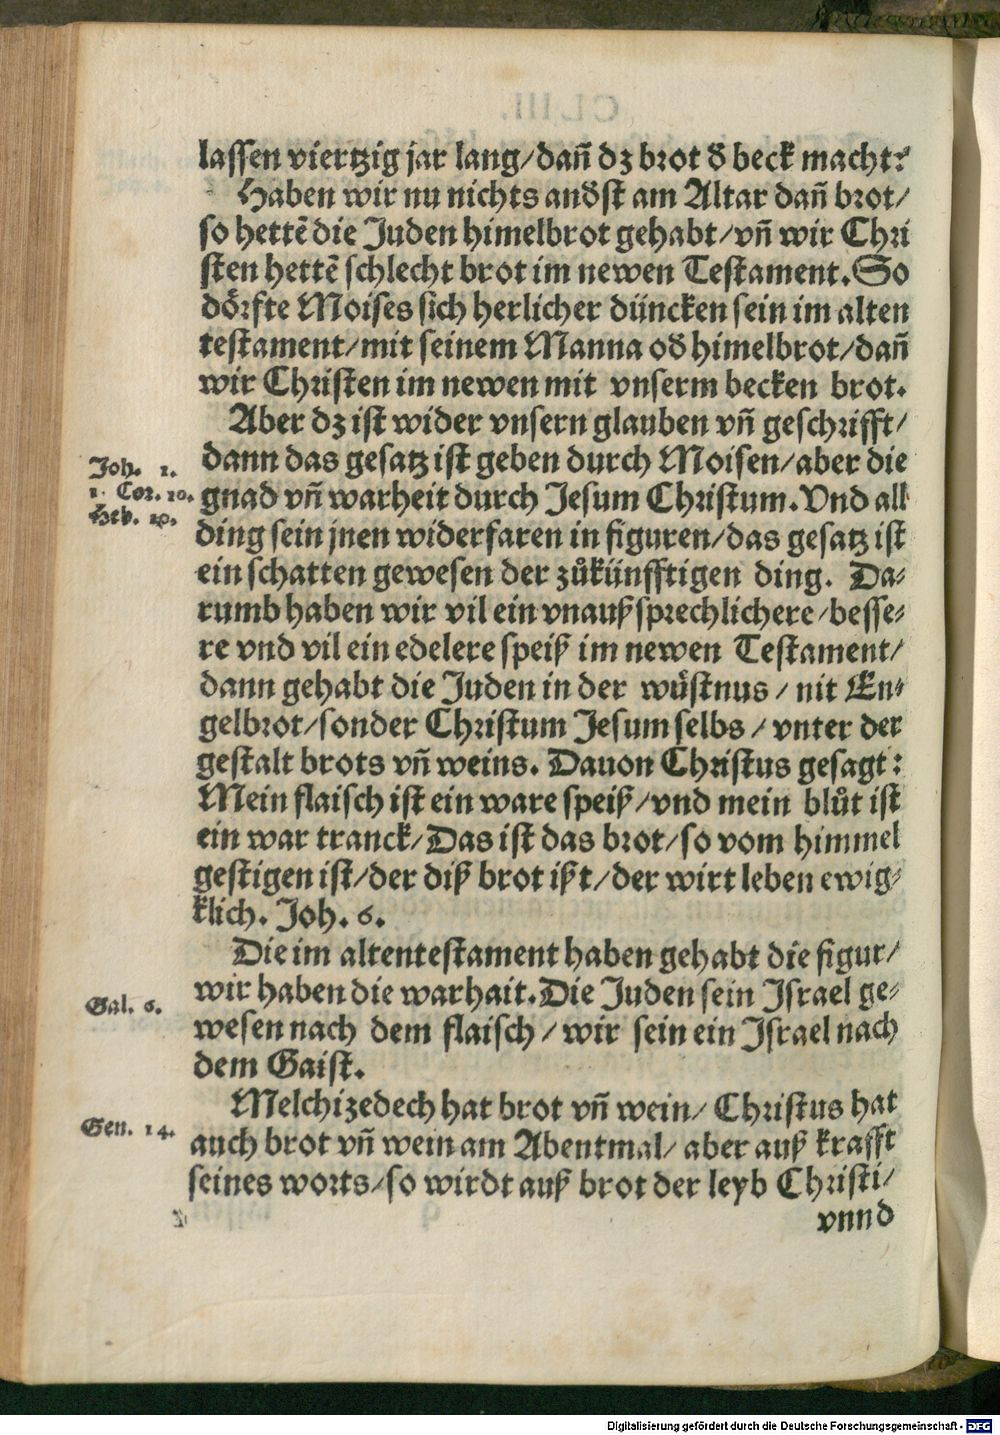 lassen viertzig jar lang/dañ dz brot d̕ beck macht?
Haben wir nu nichts and̕st am Altar dañ brot/
so hettē die Juden himelbrot gehabt/vñ wir Chri
sten hettē schlecht brot im newen Testament. So
dörfte Moises sich herlicher düncken sein im alten
testament/mit seinem Manna od̕ himelbrot/dañ
wir Christen im newen mit vnserm becken brot.
Aber dz ist wider vnsern glauben vñ geschrifft/
Joh. 1.
1. Cor. 10.
Heb. 10.
dann das gesatz ist geben durch Moisen/aber die
gnad vñ warheit durch Jesum Christum. Vnd all
ding sein jnen widerfaren in figuren/das gesatz ist
ein schatten gewesen der zůkünfftigen ding. Da-
rumb haben wir vil ein vnaußsprechlichere/besse-
re vnd vil ein edelere speiß im newen Testament/
dann gehabt die Juden in der wüstnus/nit En-
gelbrot/sonder Christum Jesum selbs/vnter der
gestalt brots vñ weins. Dauon Christus gesagt:
Mein flaisch ist ein ware speiß/vnd mein blůt ist
ein war tranck/Das ist das brot/so vom himmel
gestigen ist/der diß brot ißt/der wirt leben ewig-
klich. Joh. 6.
Die im altentestament haben gehabt die figur/
Gal. 6.
wir haben die warhait. Die Juden sein Israel ge-
wesen nach dem flaisch/wir sein ein Israel nach
dem Gaist.
Melchizedech hat brot vñ wein/Christus hat
Gen. 14.
auch brot vñ wein am Abentmal/aber auß krafft
seines worts/so wirdt auß brot der leyb Christi/
vnnd
Digitalisierung gefördert durch die Deutsche Forschungsgemeinschaft - DFG